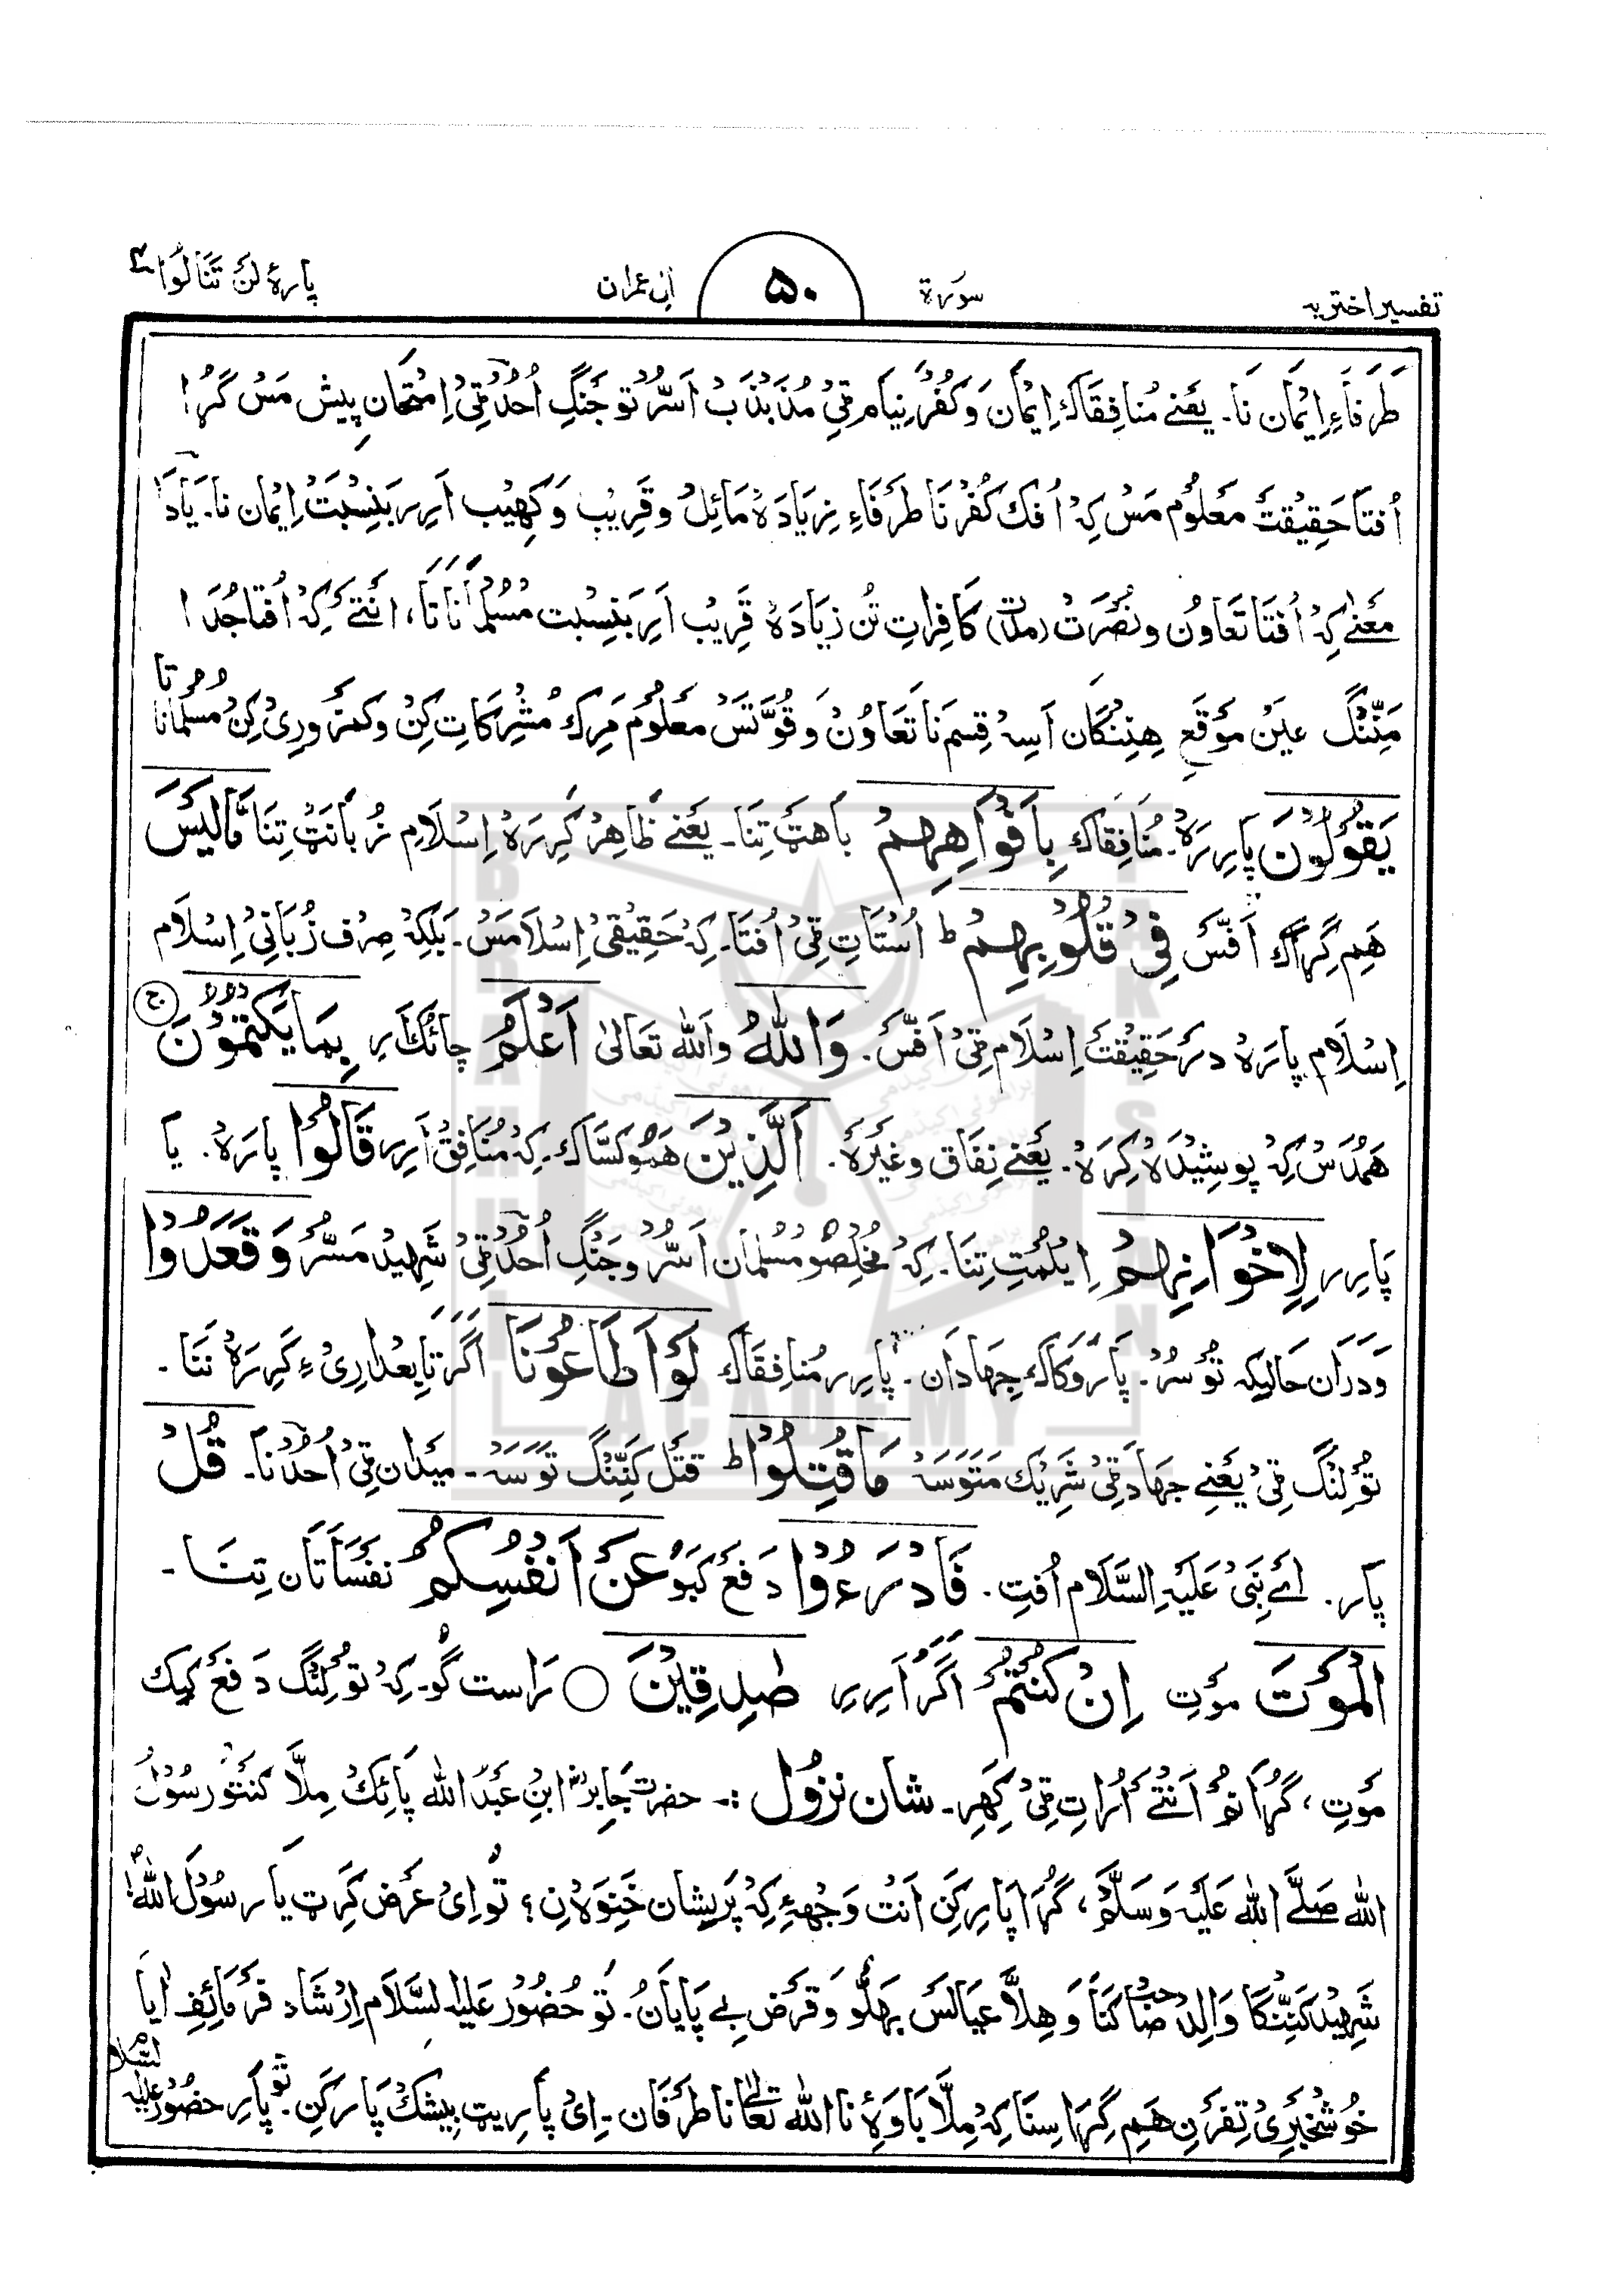 تفسیر اختریہ
سورۃ
۵۰
اٰلِ عمران
پارۂ لَنْ تَنَالُوا ۴
طَرَفَاءِ اِیْمَان نَا۔ یعنے مُنافِقَاک اِیْمَان وَ کُفْرُ نِیَام ٹِیْ مُذَبْذَبْ اَسُّرْ تو جَنْگِ اُحُد ٹِیْ اِمْتِحَان پیش مَسْ گُڑَا
اُفْتَا حَقِیْقَتْ مَعْلُوم مَسْ کِہْ اُفک کُفْرْ نَا طَرَفَاءِ زِیَادَہْ مَائِلْ وَ قَرِیْب وَ کَھِیْب اَرِر بَنِسْبَتْ اِیْمَان نا۔ یَا دَا
مَعْنٰے کِہْ اُفْتَا تَعَاوُن و نُصْرَتْ (مدت) کَافِرَاتِ تُن زِیَادَہْ قَرِیْب اَرِ بَنِسْبَت مُسْلُمَانَاتَا، اَنْتَے کِہْ اُفْتَا جُدَا
مَنِّنْگ عَیْن مَوْقَعِ ہِنِنْگان اَسِہْ قِسِم نَا تَعَاوُنْ وَ قُوَّتَسْ مَعْلُوْم مَرِک مُشْرِکَاتِ کِنْ وَ کَمْزَوْرِیْ کِنْ مُسْلُمَانَاتا
یَقُوْلُوْنَ پَارِرَہْ۔ مُنَافِقَاک بِاَفْوَاھِھِمْ بَاھَتْ تِنَا۔ یَعْنے ظَاہِرْ کِرِرَہْ اِسْلَامِ زُبَانَتْ تِنَا مَّا لَیْسَ
ھَمِ گِرَاک اَفَّسْ فِیْ قُلُوْبِھِمْ ط اُسْتَاتِ ٹِیْ اُفْتَا۔ کِہْ حَقِیْقِیْ اِسْلَامَسْ۔ بَلِکِہْ صِرْف زُبَانِیْ اِسْلَام
اِسْلَام پَارَہْ دَرْ حَقِیْقَتْ اِسْلَام ٹِیْ اَفَّسْ۔ وَاللّٰہُ وَاَللّٰہ تَعَالیٰ اَعْلَمُ چَائَنْکْ اَرِ بِمَا یَکْتُمُوْنَ ج
ھَمُدَسْ کِہْ پوشِیْدَہْ کِرَہْ۔ یَعْنے نِفَاق وغَیْرَہْ۔ اَلَّذِیْنَ ھَمُوکَسَّاک۔ کِہْ مُنَافِقْ اَرِر قَالُوْا پَارَہْ۔ یَا
پَارِر لِاِخْوَانِھِمْ اِیْلُمْتِ تِنَا۔ کِہْ مُخْلِصُو مُسْلُمان اَسُّرْ و جَنْگِ اُحُد ٹِیْ شَہِیْد مَسُّرْ وَقَعَدُوْا
وَ دَرَان حَالِیکہ تُوسُرْ۔ پَارُوکَاک جِہَادَان۔ پَارِر مُنَافِقَاک لَوْ اَطَاعُوْنَا اَگَرْ تَابِعْدَارِیْ ءِ کَرِرَہْ نَنَا۔
تُوْلِنْگ ٹِیْ یَعْنے جِہَاد ٹِیْ شَرِیْک مَتَوْسَہْ مَا قُتِلُوْا ط قَتْل کَنِّنْگ تَوْسَہْ۔ مَیْدَان ٹِیْ اُحُدْنَا۔ قُلْ
پَار۔ اَے نَبِیْ عَلَیْہِ السَّلَام اُفْتِ۔ فَادْرَءُوْا دَفْع کَبُوْ عَنْ اَنْفُسِکُمُ نَفْسَاتَان تِنَا۔
الْمَوْتَ مَوْتِ اِنْ کُنْتُمْ اَگَرْ اَرِرِ صٰدِقِیْنَ ○ رَاست گُو۔ کِہْ تُوْلِنْگ دَفْعْ کیک
مَوْتِ، گُڑَا نُمْ اَنْتَے اُرَاتِ ٹِیْ کَھِرِ۔ شان نزول :۔ حضرت جَابِرْ ابنِ عَبْدُ اللّٰہ پَائِکْ مِلَّا کَنْتُوْ رَسُوْل
اللّٰہ صَلَّے اللّٰہ عَلَیْہِ وَسَلَّمْ، گُڑَا پَارِ کَنِ اَنْت وَجْھَے کِہْ پَرِیْشَان خَنِوَہْ نِ؛ تُو اِیْ عَرْض کَرِٹ یَا رسُوْلَ اللّٰہ
شَہِیْد کَنِّنْگَا وَالِدْ صَاحب کَنَا وَ ھِلَّا عِیَالَسْ بَھَلُّو وَ قَرْض بے پَایَانْ۔ تو حُضُوْر عَلَیْہِ السَّلَام اِرْشَاد فَرْمَائِفِ اٰیَا
خُوشْخَبْرِیْ تِفَرْنِ ھَمِ گِڑَا سِنَا کِہْ مِلَّا بَاوَہْ نَا اللّٰہ تَعَالٰی نَا طَرَفَان۔ اِیْ پَارِیٹ بیشَکْ پَار کَنِ۔ تو پَارِ حضُوْر علیہ السَّلَام